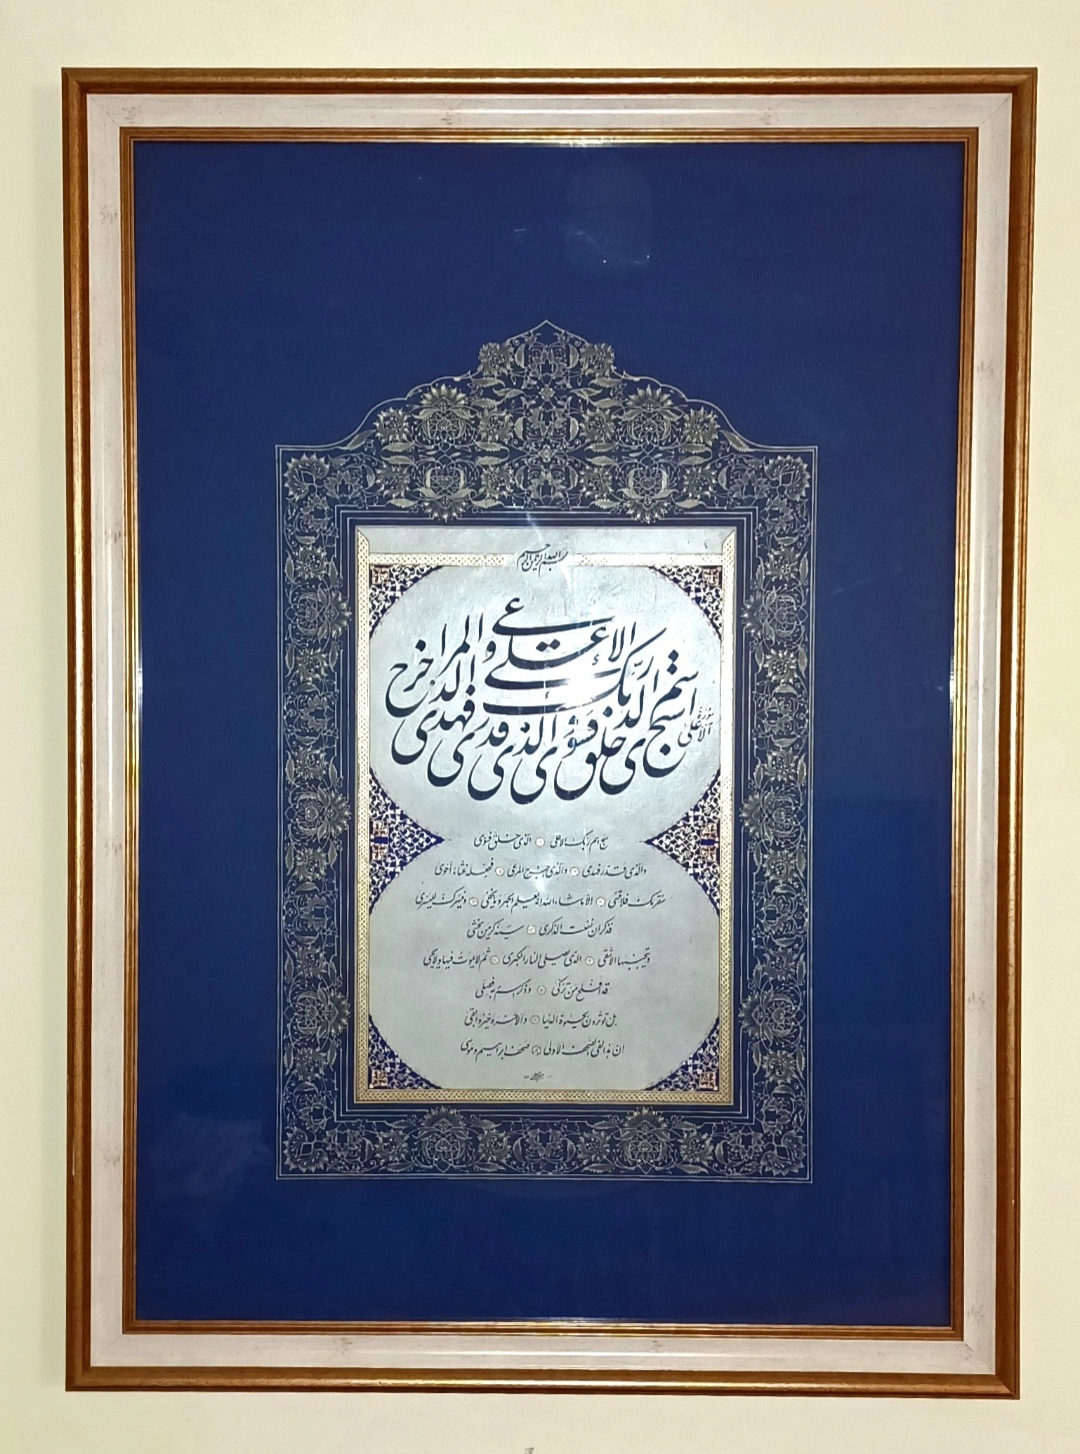 بسم الله الرحمن الرحیم
سبح اسم ربک الاعلی الذی خلق فسوی والذی قدر فهدی والذی اخرج المرعی
سورة الاعلی
سبح اسم ربک الاعلی الذی خلق فسوی
والذی قدر فهدی والذی اخرج المرعی فجعله غثاء احوی
سنقرئک فلا تنسی الا ماشاء الله انه یعلم الجهر و ما یخفی و نیسرک للیسری
فذکر ان نفعت الذکری سیذکر من یخشی
و یتجنبها الاشقی الذی یصلی النار الکبری ثم لا یموت فیها و لا یحیی
قد افلح من تزکی و ذکر اسم ربه فصلی
بل تؤثرون الحیوة الدنیا والاخرة خیر و ابقی
ان هذا لفی الصحف الاولی صحف ابراهیم و موسی